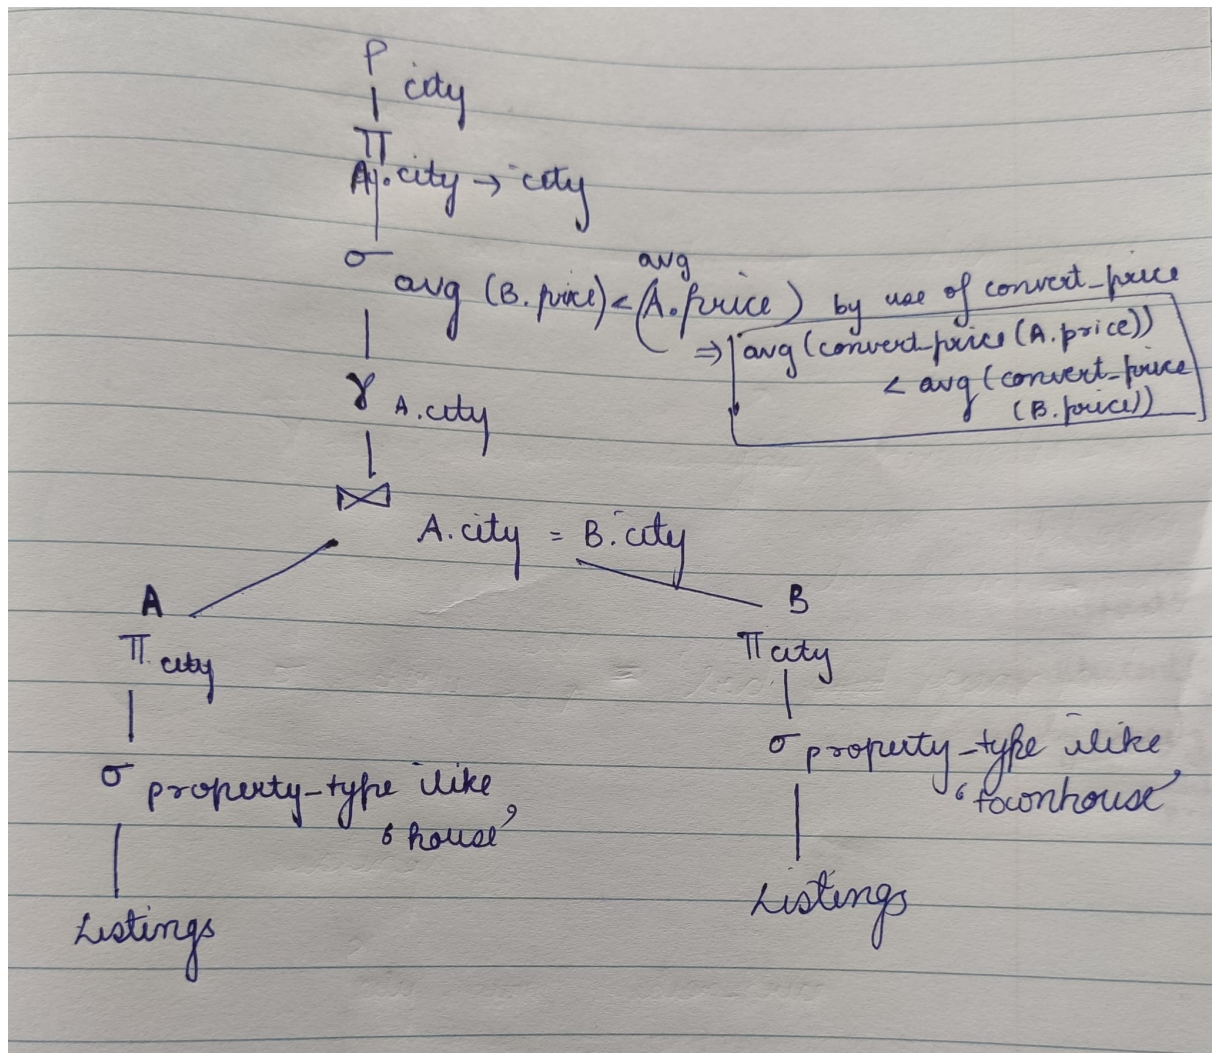 P city
Π
A.city → city
σ avg (B.price) < avg (A.price) by use of convert_price
⇒ avg (convert_price (A.price))
< avg (convert_price
(B.price))
γ A.city
⋈ A.city = B.city
A
Π city
σ property_type ilike
'house'
Listings
B
Π city
σ property_type ilike
'townhouse'
Listings